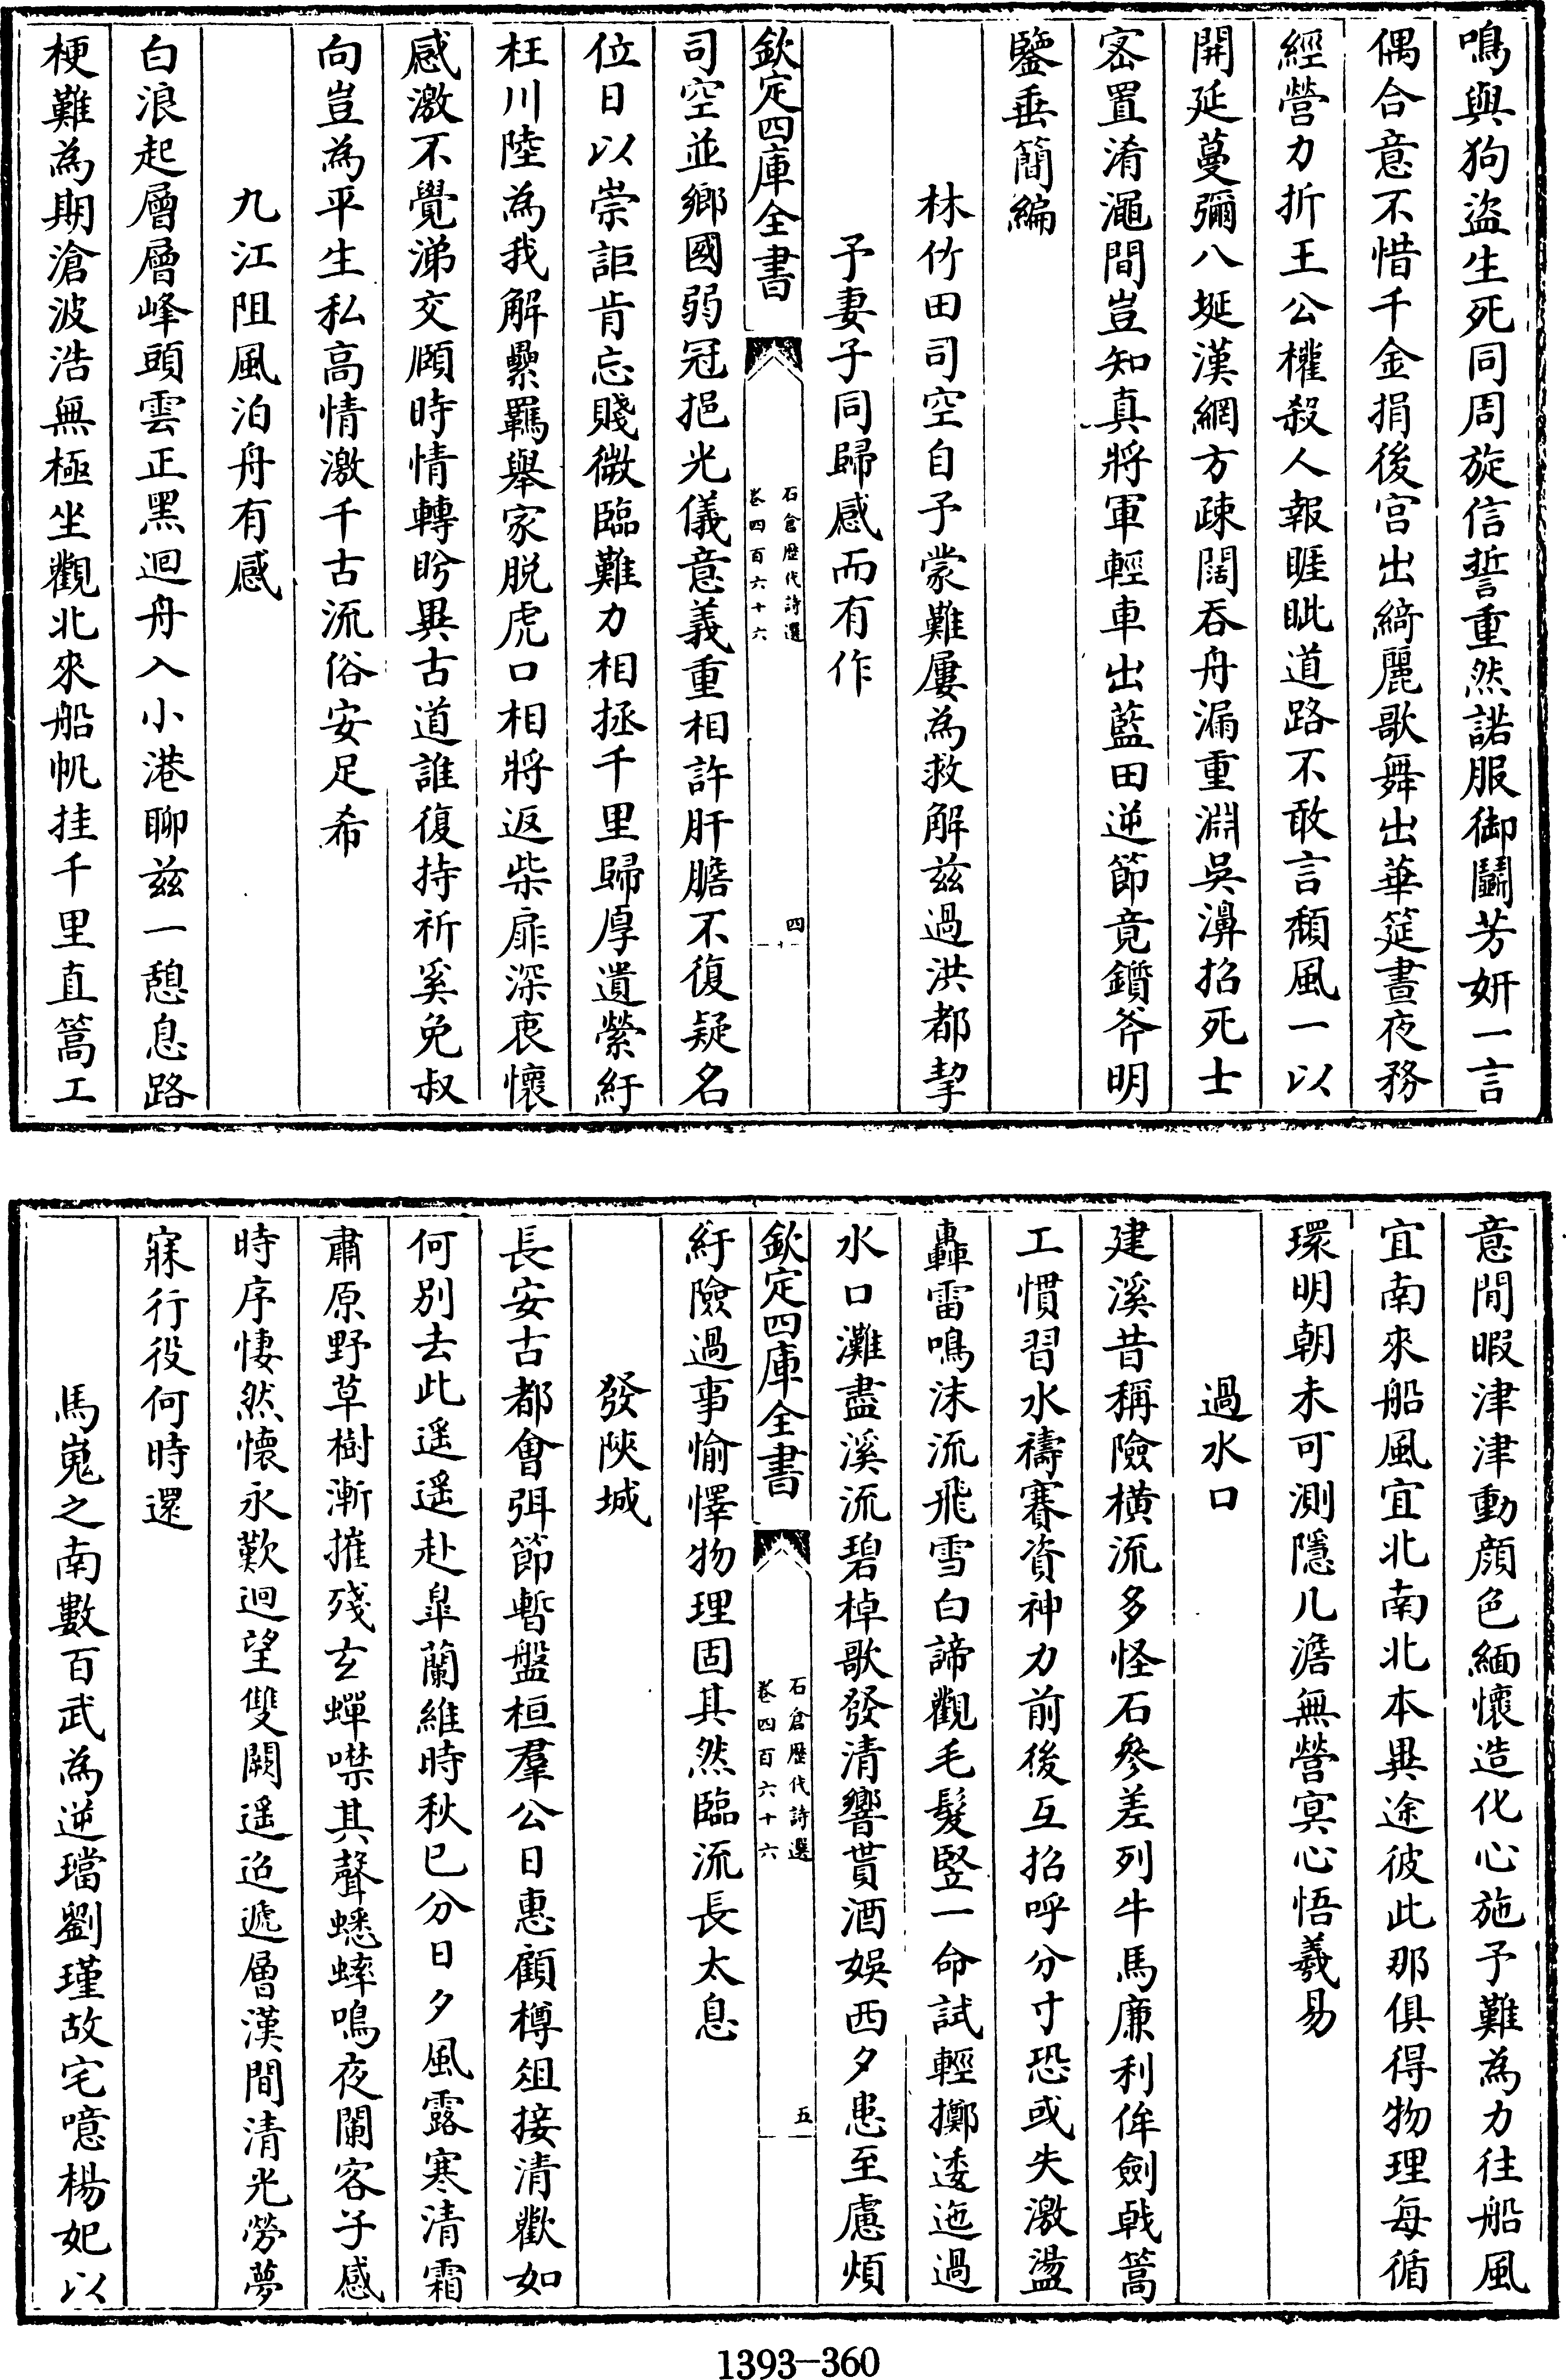 鳴與狗盜生死同周旋信誓重然諾服御鬬芳妍一言
偶合意不惜千金捐後宫出綺麗歌舞出華筵晝夜務
經營力折王公權殺人報睚眦道路不敢言頽風一以
開延蔓彌八埏漢網方疎闊吞舟漏重淵吳濞招死士
宻置淆澠間豈知真將軍輕車出藍田逆節竟鑕斧明
鑒垂簡編
林竹田司空自予蒙難屢為救解兹過洪都挈
予妻子同歸感而有作
欽定四庫全書
石倉歴代詩選
卷四百六十六
四
司空並鄉國弱冠挹光儀意義重相許肝膽不復疑名
位日以崇詎肯忘賤微臨難力相拯千里歸厚遺縈紆
枉川陸為我解纍羈舉家脱虎口相將返柴扉深衷懷
感激不覺涕交頤時情轉盻異古道誰復持祈奚免叔
向豈為平生私高情激千古流俗安足希
九江阻風泊舟有感
白浪起層層峰頭雲正黑迴舟入小港聊兹一憩息路
梗難為期滄波浩無極坐觀北來船帆挂千里直篙工
意閒暇津津動顔色緬懷造化心施予難為力往船風
宜南來船風宜北南北本異途彼此那俱得物理每循
環明朝未可測隱几澹無營冥心悟羲易
過水口
建溪昔稱險横流多怪石參差列牛馬亷利侔劍戟篙
工慣習水禱賽資神力前後互招呼分寸恐或失激盪
轟雷鳴沫流飛雪白諦觀毛髮竪一命試輕擲逶迤過
水口灘盡溪流碧棹歌發清響貰酒娱西夕患至慮煩
欽定四庫全書
石倉歴代詩選
卷四百六十六
五
紆險過事愉懌物理固其然臨流長太息
發陜城
長安古都㑹弭節暫盤桓羣公日惠顧樽俎接清歡如
何别去此遥遥赴臯蘭維時秋已分日夕風露寒清霜
肅原野草樹漸摧殘玄蟬噤其聲蟋蟀鳴夜闌客子感
時序悽然懷永歎迴望雙闕遥迢遞層漢間清光勞夢
寐行役何時還
馬嵬之南數百武為逆璫劉瑾故宅噫楊妃以
1393-360